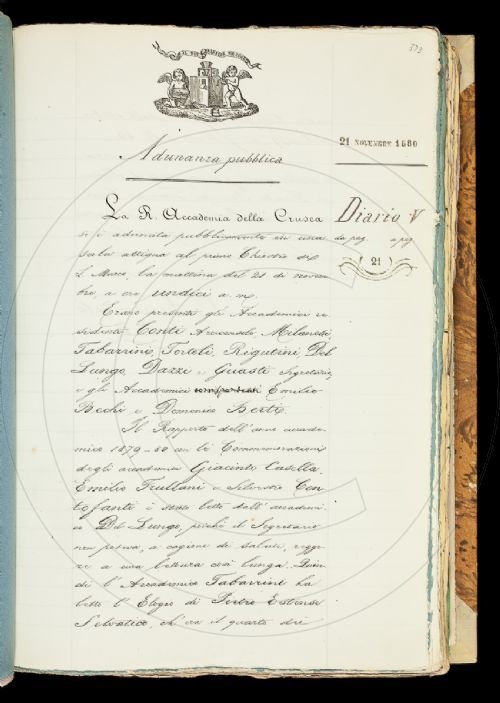 IL PIÙ BEL FIOR NE COGLIE
373
21 NOVEMBRE 1880
Adunanza pubblica
La R. Accademia della Crusca
Diario V
si è adunata pubblicamente in una
da pag. a pag.
sala attigua al primo Chiostro di S.
21
Marco, la mattina del 21 di novem-
bre a ore undici a. m.
Erano presenti gli Accademici re-
sidenti Conti Arciconsolo, Milanesi,
Tabarrini, Tortoli, Rigutini, Del
Lungo, Dazzi e Guasti Segretario;
e gli Accademici corrispondenti Emilio
Bechi e Domenico Berti.
Il Rapporto dell'anno accade-
mico 1879-80 con le Commemorazioni
degli accademici Giacinto Casella,
Emilio Frullani e Silvestro Cen-
tofanti è stato letto dall'accademi-
co Del Lungo, perchè il Segretario
non poteva, a cagione di salute, regge-
re a una lettura così lunga. Quin-
di l'Accademico Tabarrini ha
letto l'Elogio di Pietro Estense
Selvatico, ch'era il quarto dei